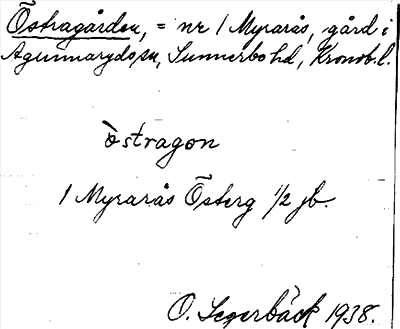 Östragården, = nr 1 Myrarås, gård i
Agunnaryds sn, Sunnerbo hd, Kronob. l.
òstragon
1 Myrarås Österg 1/2 jb.
O. Segerbäck 1938.